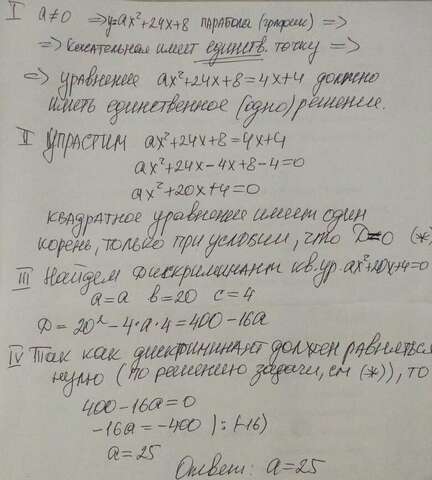 I a≠0 ⇒ y=ax²+24x+8 парабола (график) ⇒
⇒ Касательная имеет единств. точку ⇒
⇒ уравнение ax²+24x+8=4x+4 должно
иметь единственное (одно) решение.
II Упрастим ax²+24x+8=4x+4
ax²+24x-4x+8-4=0
ax²+20x+4=0
квадратное уравнение имеет один
корень, только при условии, что D=0 (*)
III Найдем дискриминант кв.ур. ax²+20x+4=0
a=a b=20 c=4
D=20²-4·a·4=400-16a
IV Так как дискриминант должен равняться
нулю (по решению задачи, см (*)), то
400-16a=0
-16a=-400 ):(-16)
a=25
Ответ: a=25